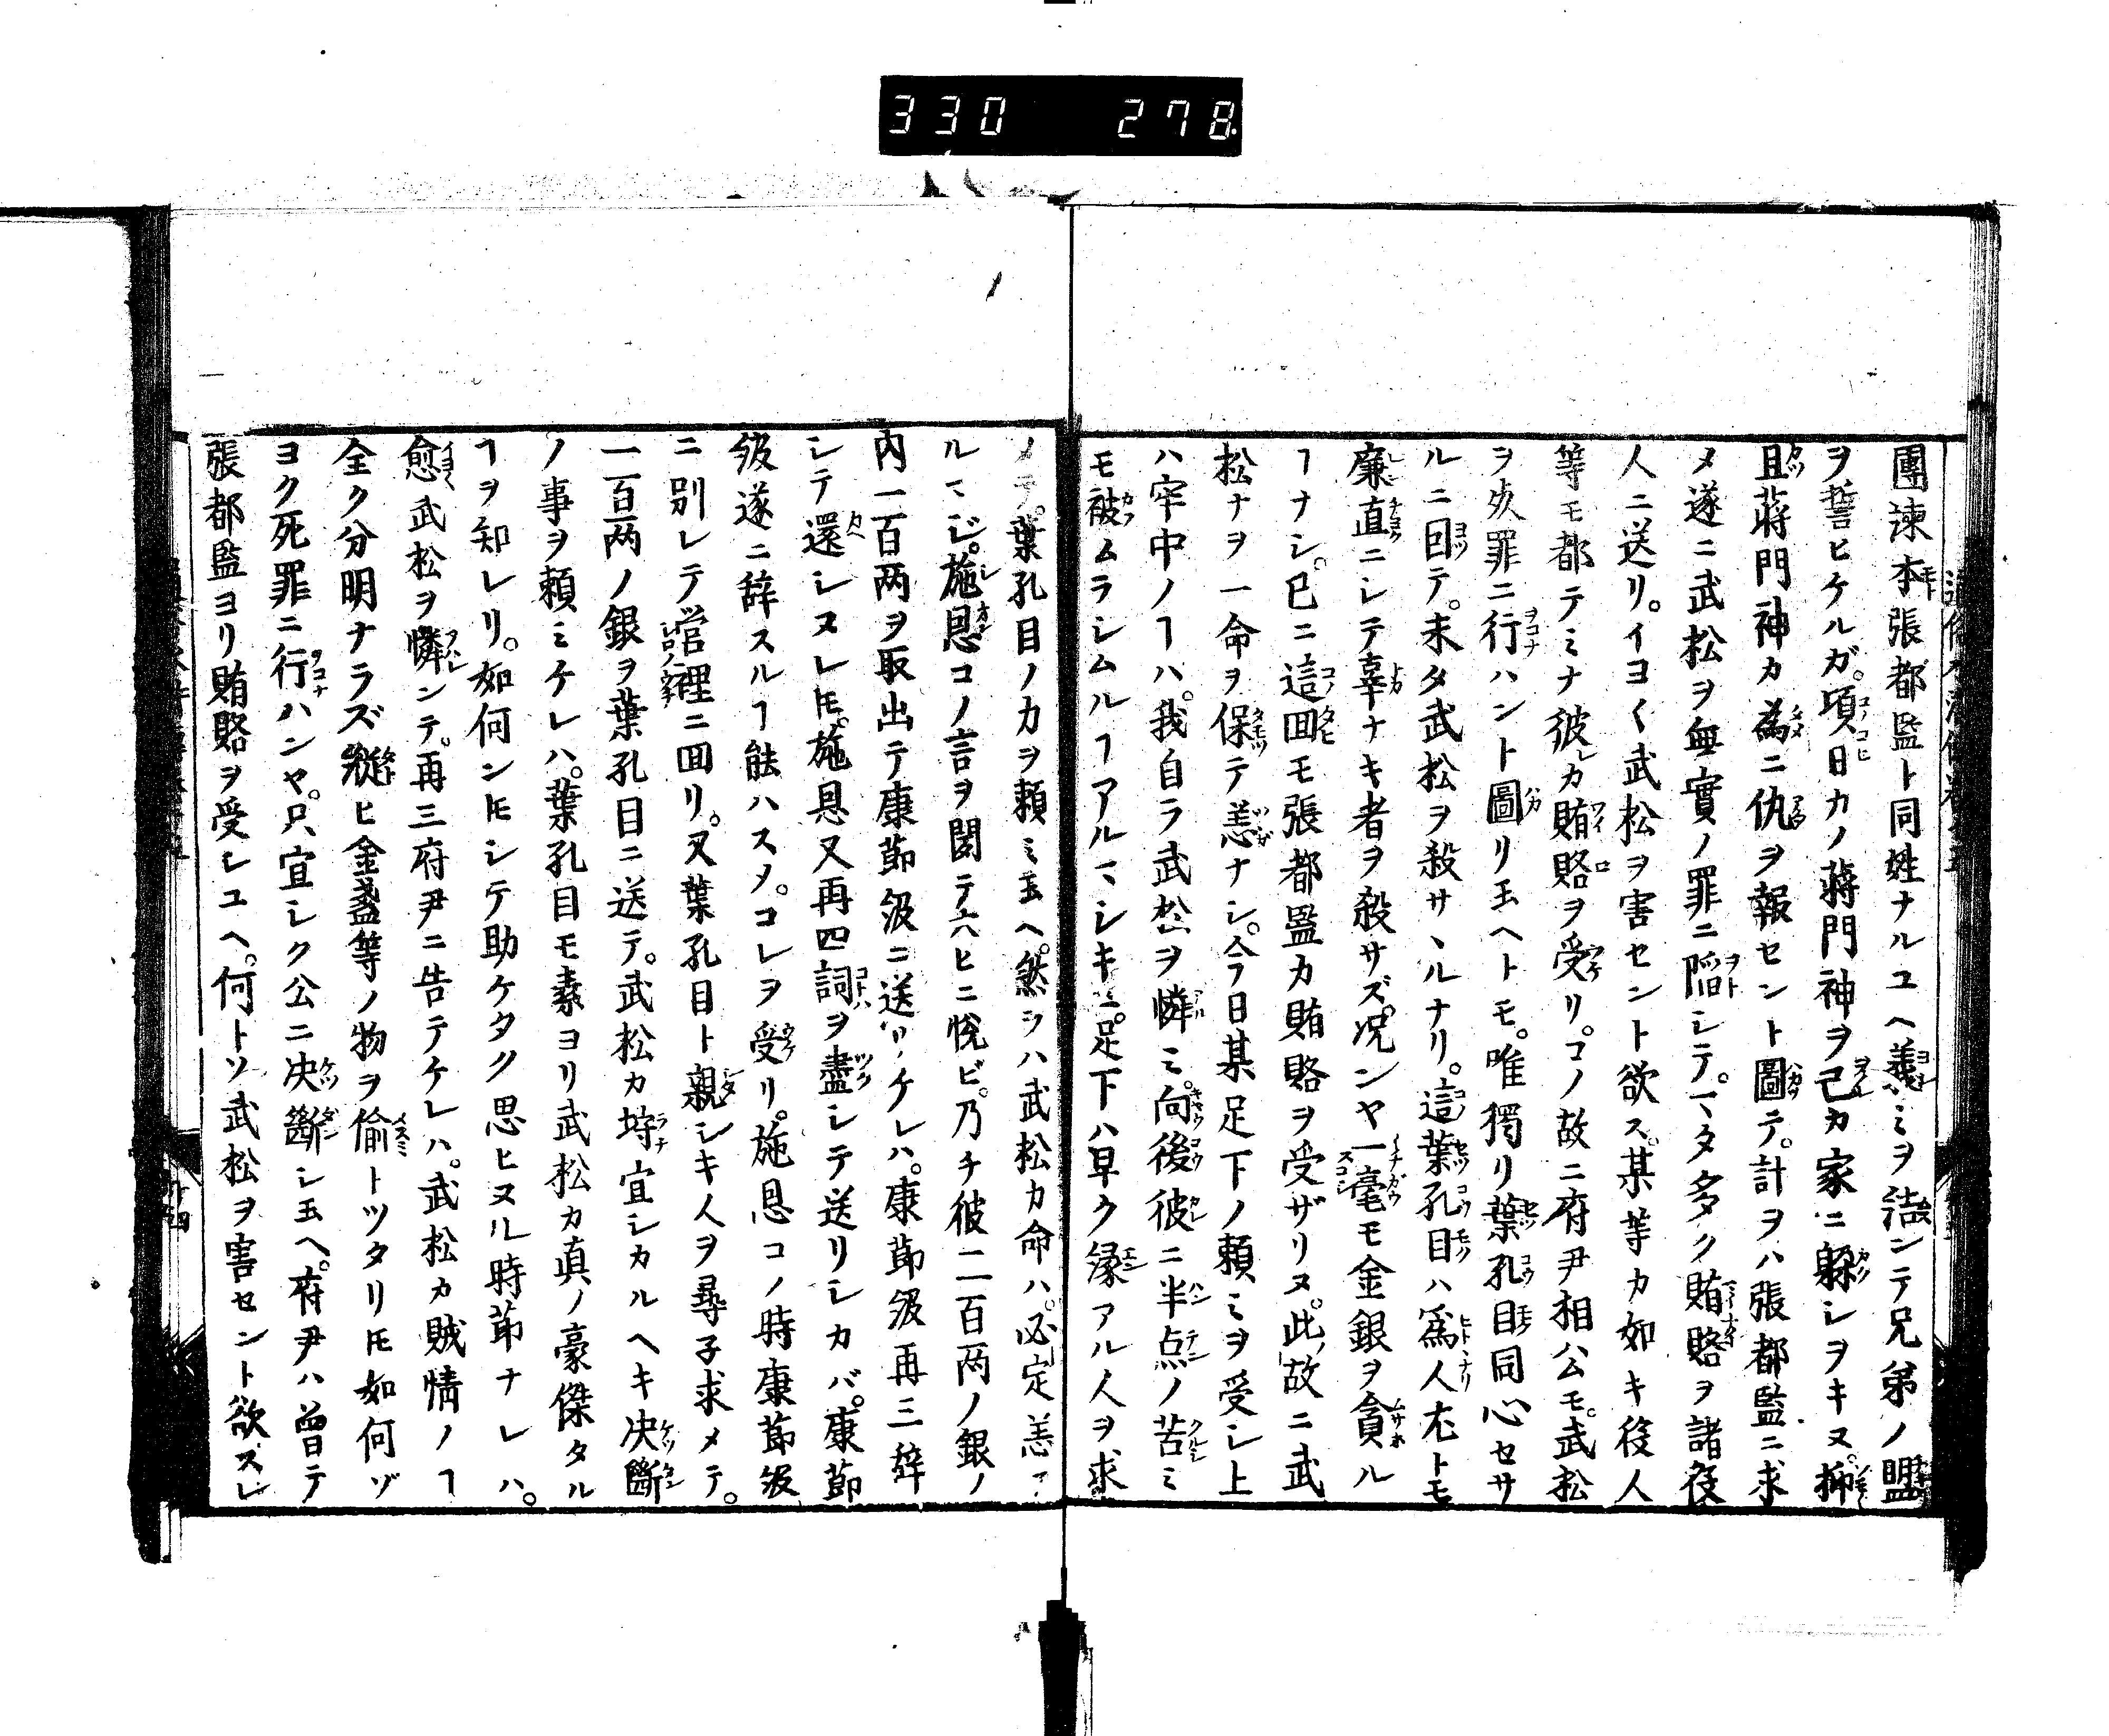 330 278
團諫本張都監ト同姓ナルユヘ義ミヲ結ンテ兄弟ノ盟
ヲ誓ヒケルガ。項日カノ蒋門神ヲ己カ家ニ躱シヲキヌ。抑
且蒋門神カ為ニ仇ヲ報セント圖テ。計ヲハ張都監ニ求
メ遂ニ武松ヲ無實ノ罪ニ陥シテ。マタ多ク賄賂ヲ諸役
人ニ送リ。イヨ〱武松ヲ害セント欲ス。某等カ如キ役人
等モ都テミナ彼レカ賄賂ヲ受リ。コノ故ニ府尹相公モ。武松
ヲ死罪ニ行ハント圖リ玉ヘトモ。唯獨リ葉孔目同心セサ
ルニ回テ。未タ武松ヲ殺サヽルナリ。這葉孔目ハ為人尤トモ
廉直ニシテ辜ナキ者ヲ殺サズ。况ンヤ一毫モ金銀ヲ貪ル
ヿナシ。已ニ這回モ張都監カ賄賂ヲ受ザリヌ。此故ニ武
松ナヲ一命ヲ保テ恙ナシ。今日某足下ノ頼ミヲ受シ上
ハ牢中ノヿハ。我自ラ武松ヲ憐ミ。向後彼ニ半点ノ苦ミ
モ被ムラシムルヿアルマシキニ。足下ハ早ク縁アル人ヲ求
メテ。葉孔目ノカヲ頼ミ玉ヘ。然ラハ武松カ命ハ。必定恙ア
ルマジ。施恩コノ言ヲ聞テ大ヒニ悅ビ。乃チ彼二百两ノ銀ノ
内一百两ヲ取出テ康節級ニ送リケレハ。康節級再三辞
シテ還シヌレ𪜈。施恩又再四詞ヲ盡シテ送リシカバ。康節
級遂ニ辞スルヿ能ハスメ。コレヲ受リ。施恩コノ時康節級
ニ別レテ営裡ニ回リ。又葉孔目ト親シキ人ヲ尋子求メテ。
一百两ノ銀ヲ葉孔目ニ送テ。武松カ埓宜シカルヘキ决斷
ノ事ヲ頼ミケレハ。葉孔目モ素ヨリ武松カ真ノ豪傑タル
ヿヲ知レリ。如何ン𪜈シテ助ケタク思ヒヌル時節ナレハ。
愈武松ヲ憐ンテ。再三府尹ニ告テケレハ。武松カ賊情ノヿ
全ク分明ナラズ縦ヒ金盞等ノ物ヲ偷トツタリ𪜈如何ゾ
ヨク死罪ニ行ハンヤ。只宜シク公ニ决斷シ玉ヘ。府尹ハ曽テ
張都監ヨリ賄賂ヲ受シユヘ。何トソ武松ヲ害セント欲スレ